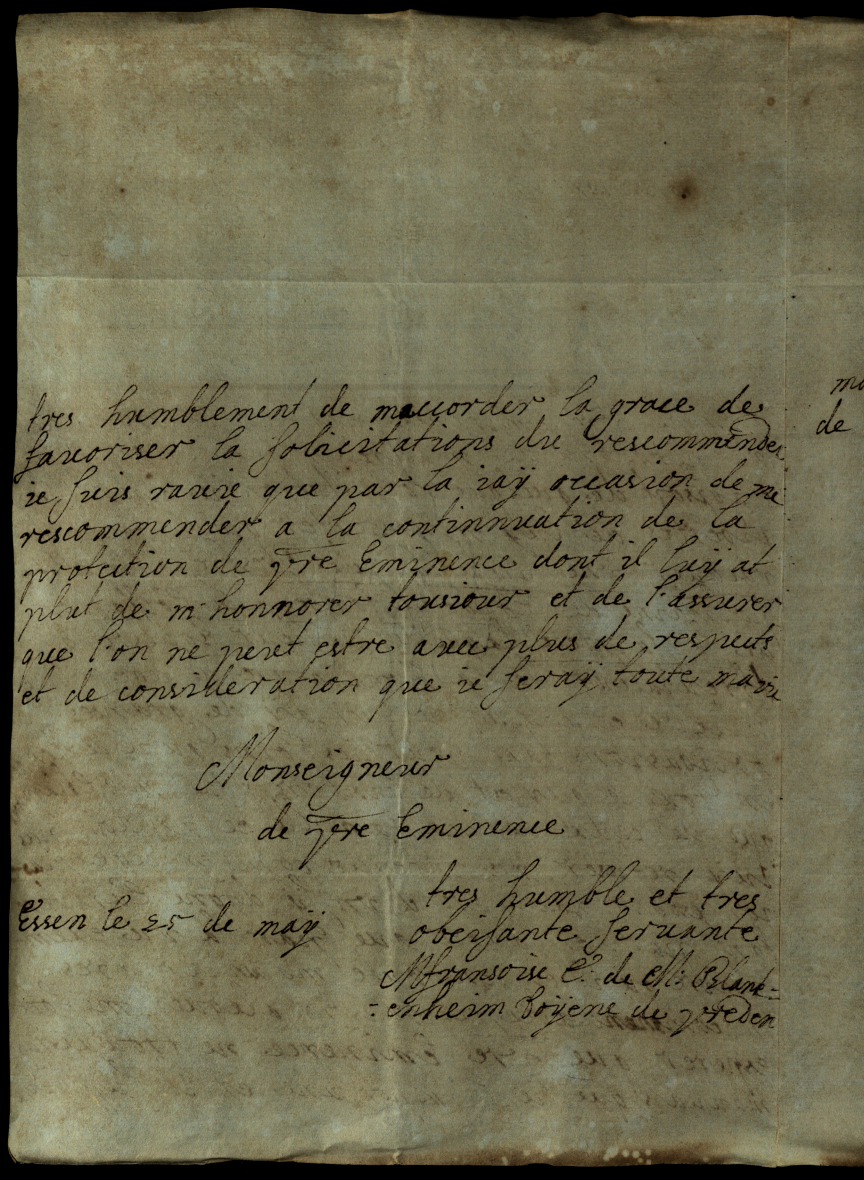 tres humblement de maccorder la grace de
fauoriser la solicitations du rescommende
ie suis rauie que par la iaÿ occasion de me
rescommender a la continnuation de la
protection de vre Eminence dont il luÿ at
plut de m honnorer tousiour et de l'assurer
que l'on ne peut estre auec plus de respects
et de consideration que ie seraÿ toute ma vie
Monseigneur
de vre Eminence
tres humble et tres
Essen le 25 de maÿ
obeisante seruante
Mfransoise C: de M: Blank=
=enheim doÿene de vreden
ma
de